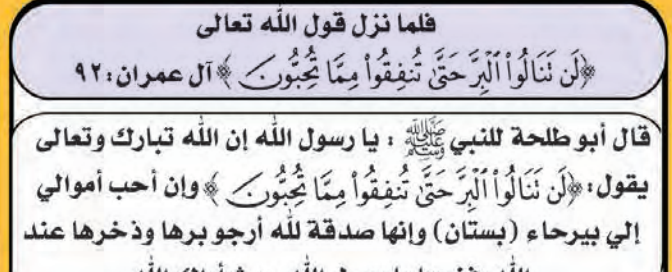 فلما نزل قول الله تعالى
﴿لَن تَنَالُوا۟ ٱلْبِرَّ حَتَّىٰ تُنفِقُوا۟ مِمَّا تُحِبُّونَ﴾ آل عمران: ٩٢
قال أبو طلحة للنبي ﷺ : يا رسول الله إن الله تبارك وتعالى
يقول: ﴿لَن تَنَالُوا۟ ٱلْبِرَّ حَتَّىٰ تُنفِقُوا۟ مِمَّا تُحِبُّونَ﴾ وإن أحب أموالي
إلي بيرحاء (بستان) وإنها صدقة لله أرجو برها وذخرها عند